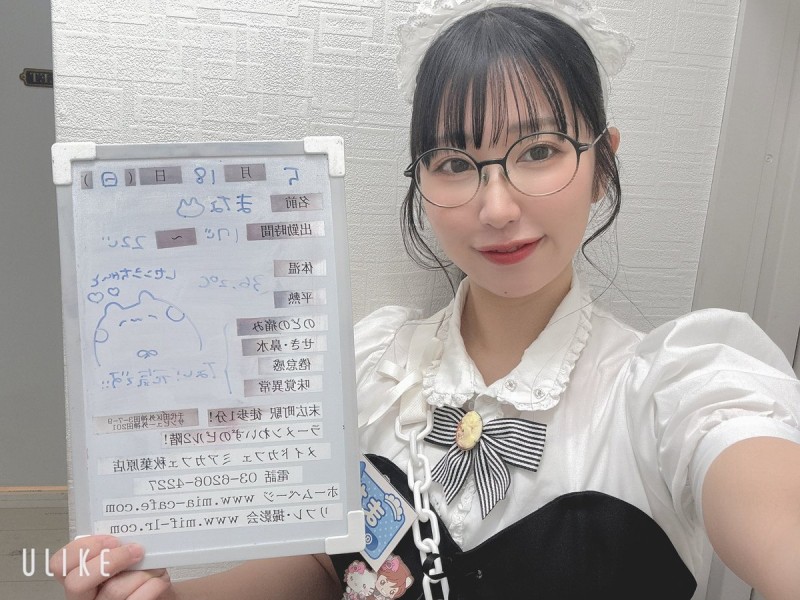 5 月 18 日 ( 日 )
名前 まな
出勤時間 17じ ~ 22じ
体温 36.2℃
平熱
のどの痛み
せき・鼻水
倦怠感
味覚異常
ない!元気です!!
末広町駅 徒歩1分!
ラーメンわいずのビル2階!
メイドカフェ ミアカフェ秋葉原店
電話 03-6206-4227
ホームページ www.mia-cafe.com
リフレ・撮影会 www.mif-lr.com
ULIKE